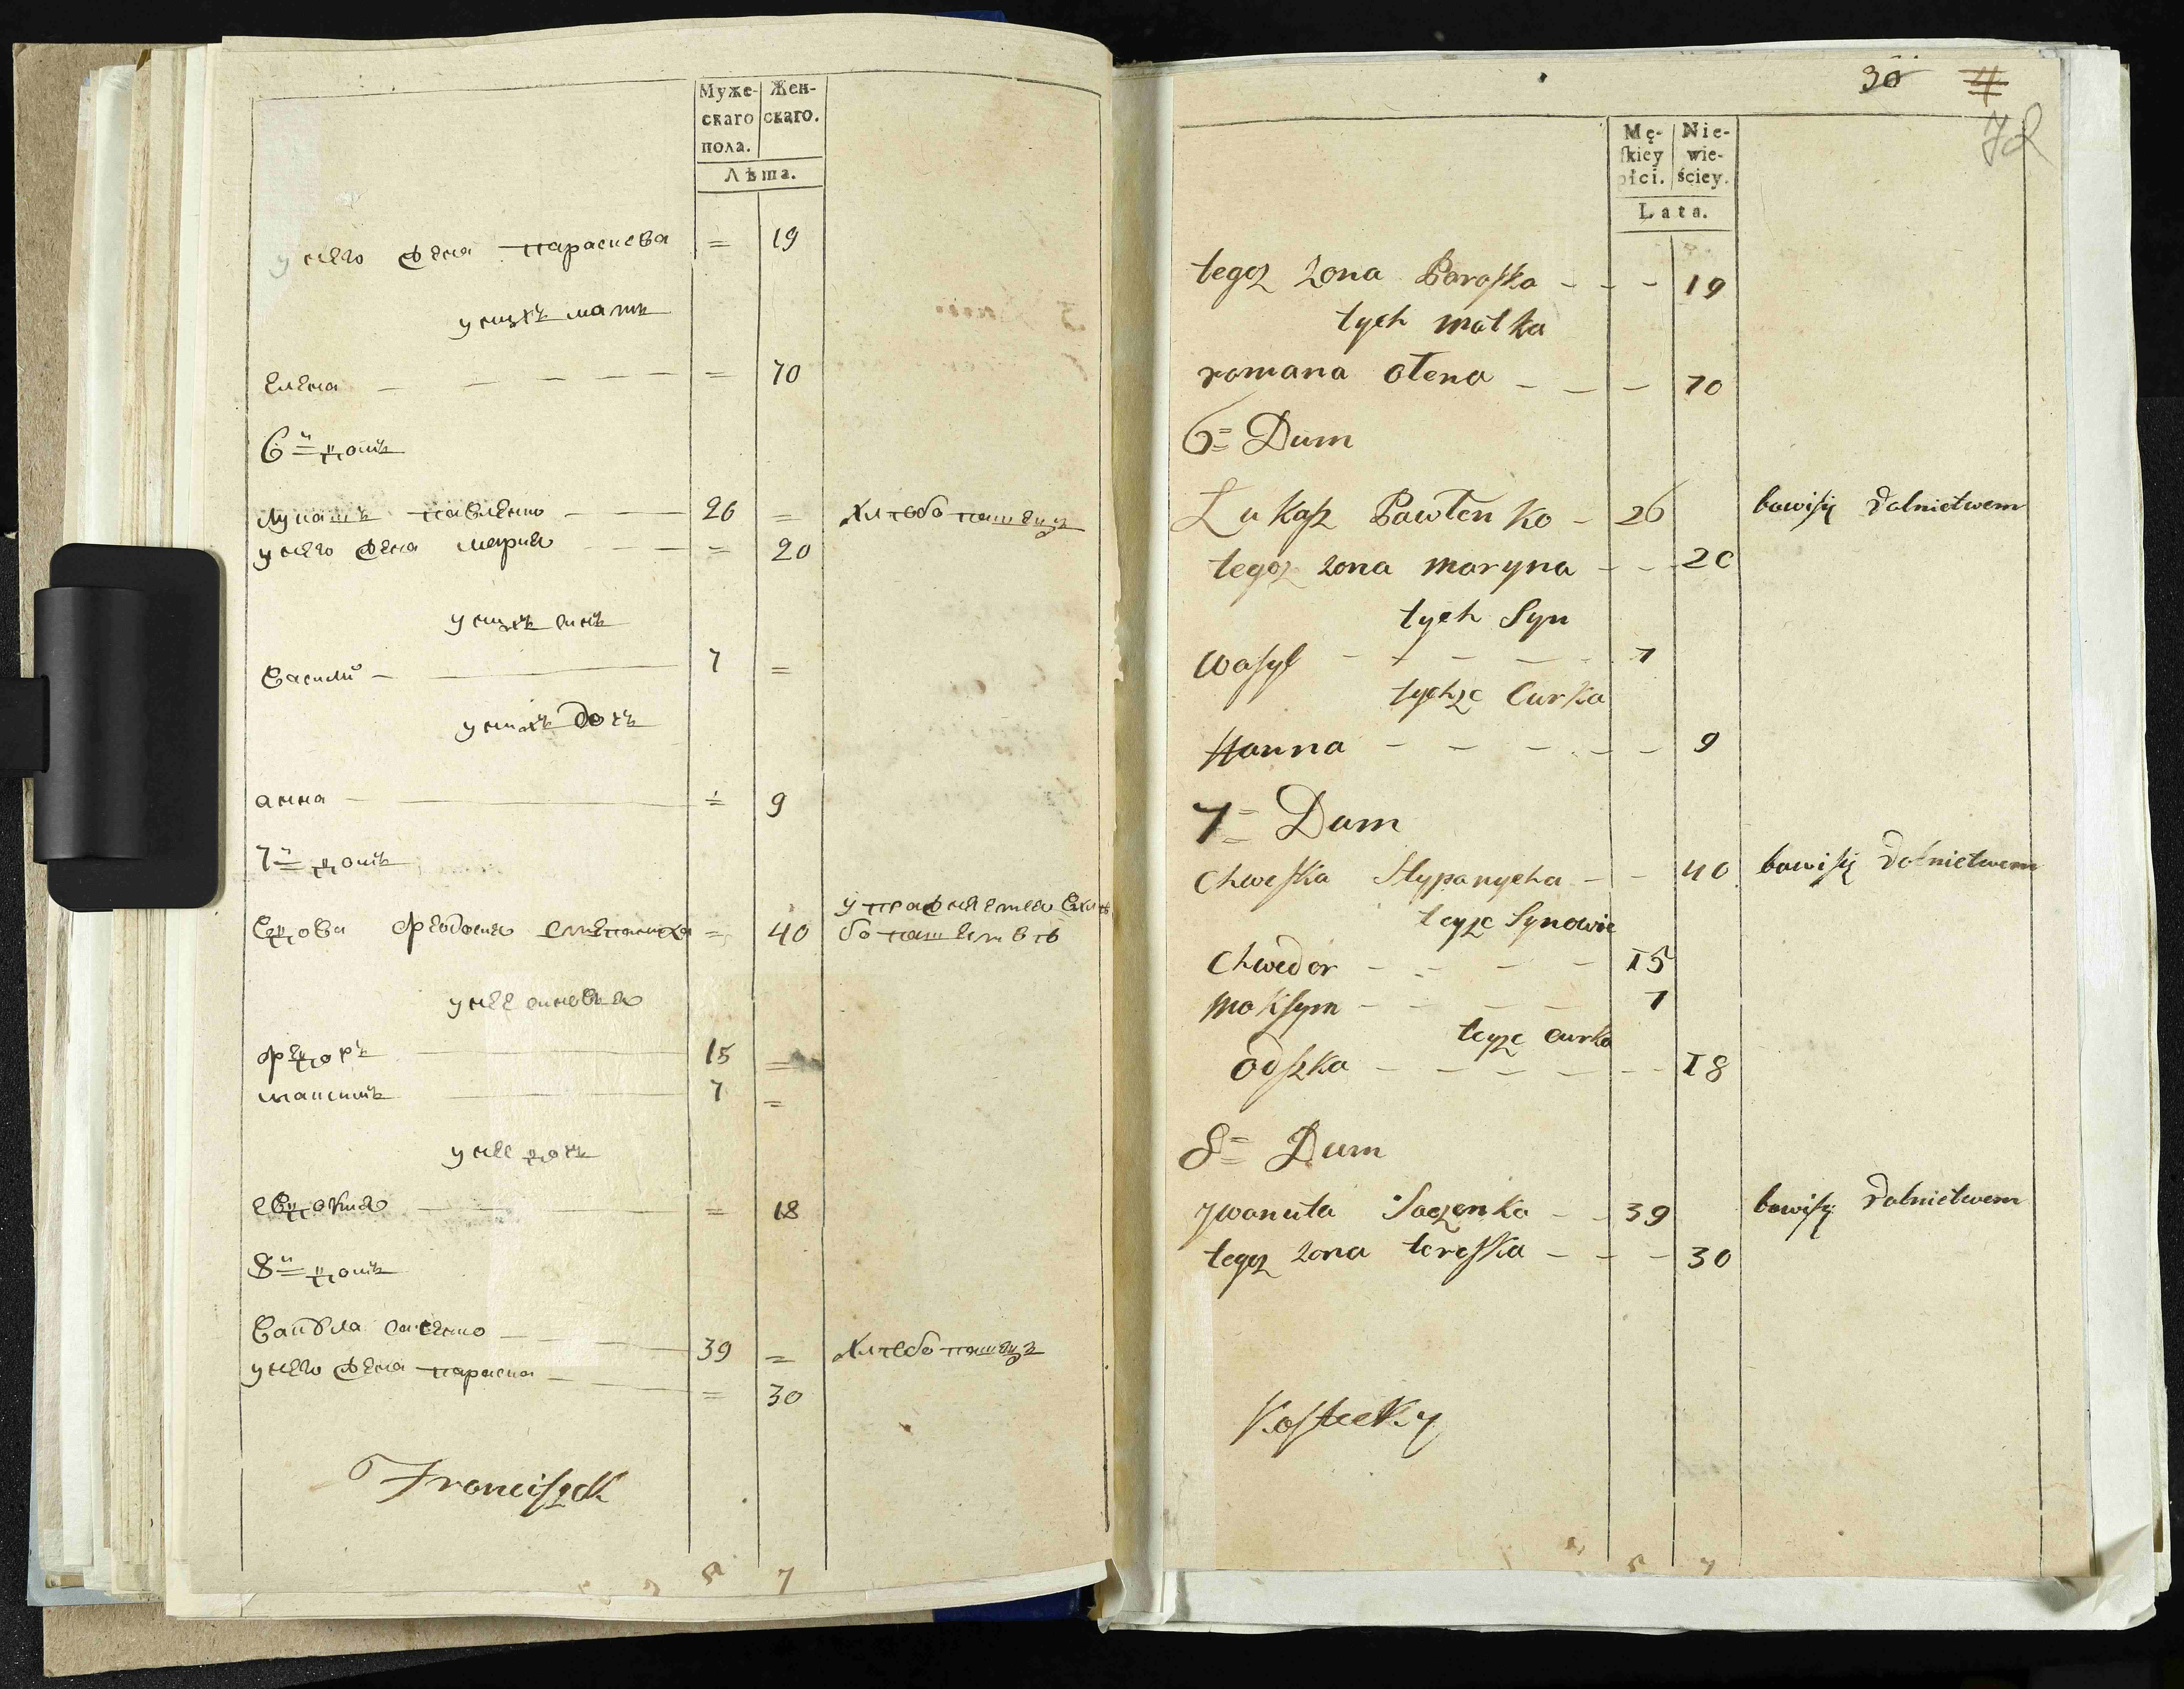 Муже-
скаго
пола.
Жен-
скаго.
Лѣта.
у него жена параскева = 19
у нихъ мать
елена = 70
6й домъ
лукашъ павленко 26 = хлѣбопашецъ
у него жена мария = 20
у нихъ синъ
василий 7 =
у нихъ дочь
анна = 9
7й домъ
вдова феодосия степаниха = 40 упражняется въ хлѣ
бопашествѣ
у нее синовья
федоръ 15 =
максимъ 7 =
у нее дочь
евдокия = 18
8й домъ
39 = хлѣбопашецъ
у него жена параска = 30
Franciszek
5 7
30 4
72
Mę-
skiey
płci.
Nie-
wie-
ściey.
Lata.
tegoz zona Paraska 19
tych matka
romana ołena 70
6 = Dum
Łukasz Pawłenko 26 bawisię Rolnictwem
tegoz zona maryna 20
tych Syn
wasyl 7
tychze Curka
Hanna 9
7 = Dum
Chweska Stypanycha 40 bawisię Rolnictwem
teyze Synowie
Chwedor 15
Maksym 7
teyze curka
odszka 18
8 = Dum
Jwanuta Saczenko 39 bawisię Rolnictwem
tegoz zona tereska 30
Kostecky
5 7